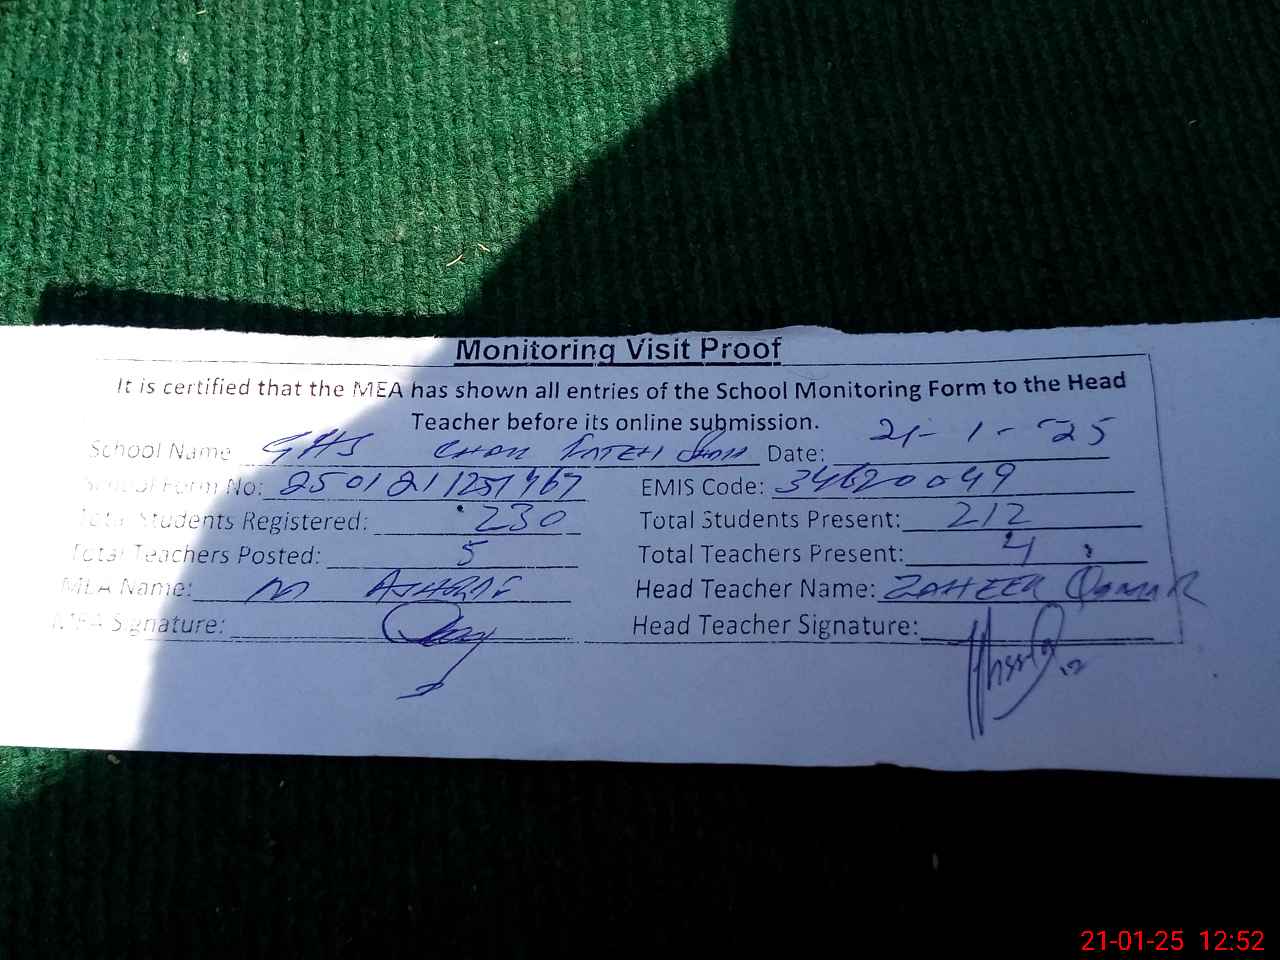 Monitoring Visit Proof
It is certified that the MEA has shown all entries of the School Monitoring Form to the Head
Teacher before its online submission.
School Name GHS Fateh Shah Date: 21-1-25
School Form No: EMIS Code: 34620049
Total Students Registered: 230 Total Students Present: 212
Total Teachers Posted: 5 Total Teachers Present: 4
MEA Name: M ASHRAF Head Teacher Name: ZAHEER QAMAR
MEA Signature: Head Teacher Signature:
21-01-25 12:52